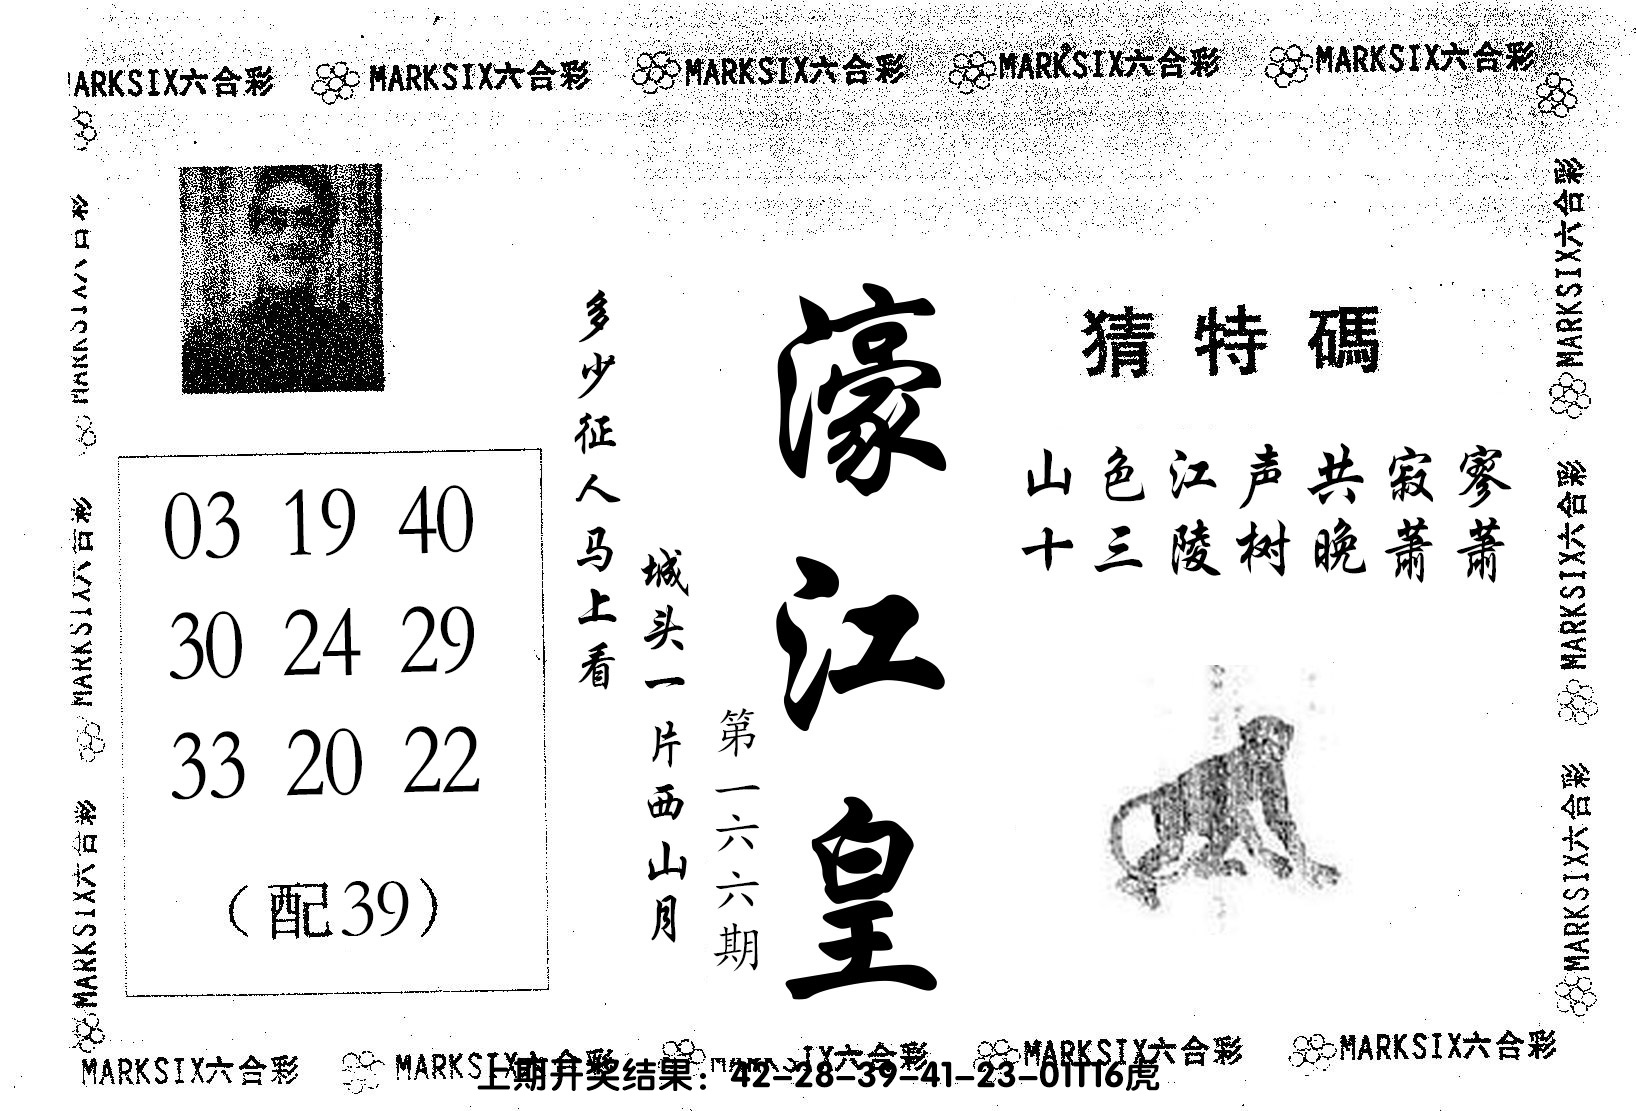 MARKSIX六合彩 MARKSIX六合彩 MARKSIX六合彩 MARKSIX六合彩 MARKSIX六合彩
猜特碼
山色江声共寂寥
十三陵树晚萧萧
濠江皇
第一六六期
城头一片西山月
多少征人马上看
03 19 40
30 24 29
33 20 22
（配39）
MARKSIX六合彩
MARKSIX六合彩
MARKSIX六合彩
MARKSIX六合彩
MARKSIX六合彩
MARKSIX六合彩
MARKSIX六合彩 MARKSIX六合彩 IX六合彩 MARKSIX六合彩 MARKSIX六合彩
上期开奖结果：42-28-39-41-23-01T16虎